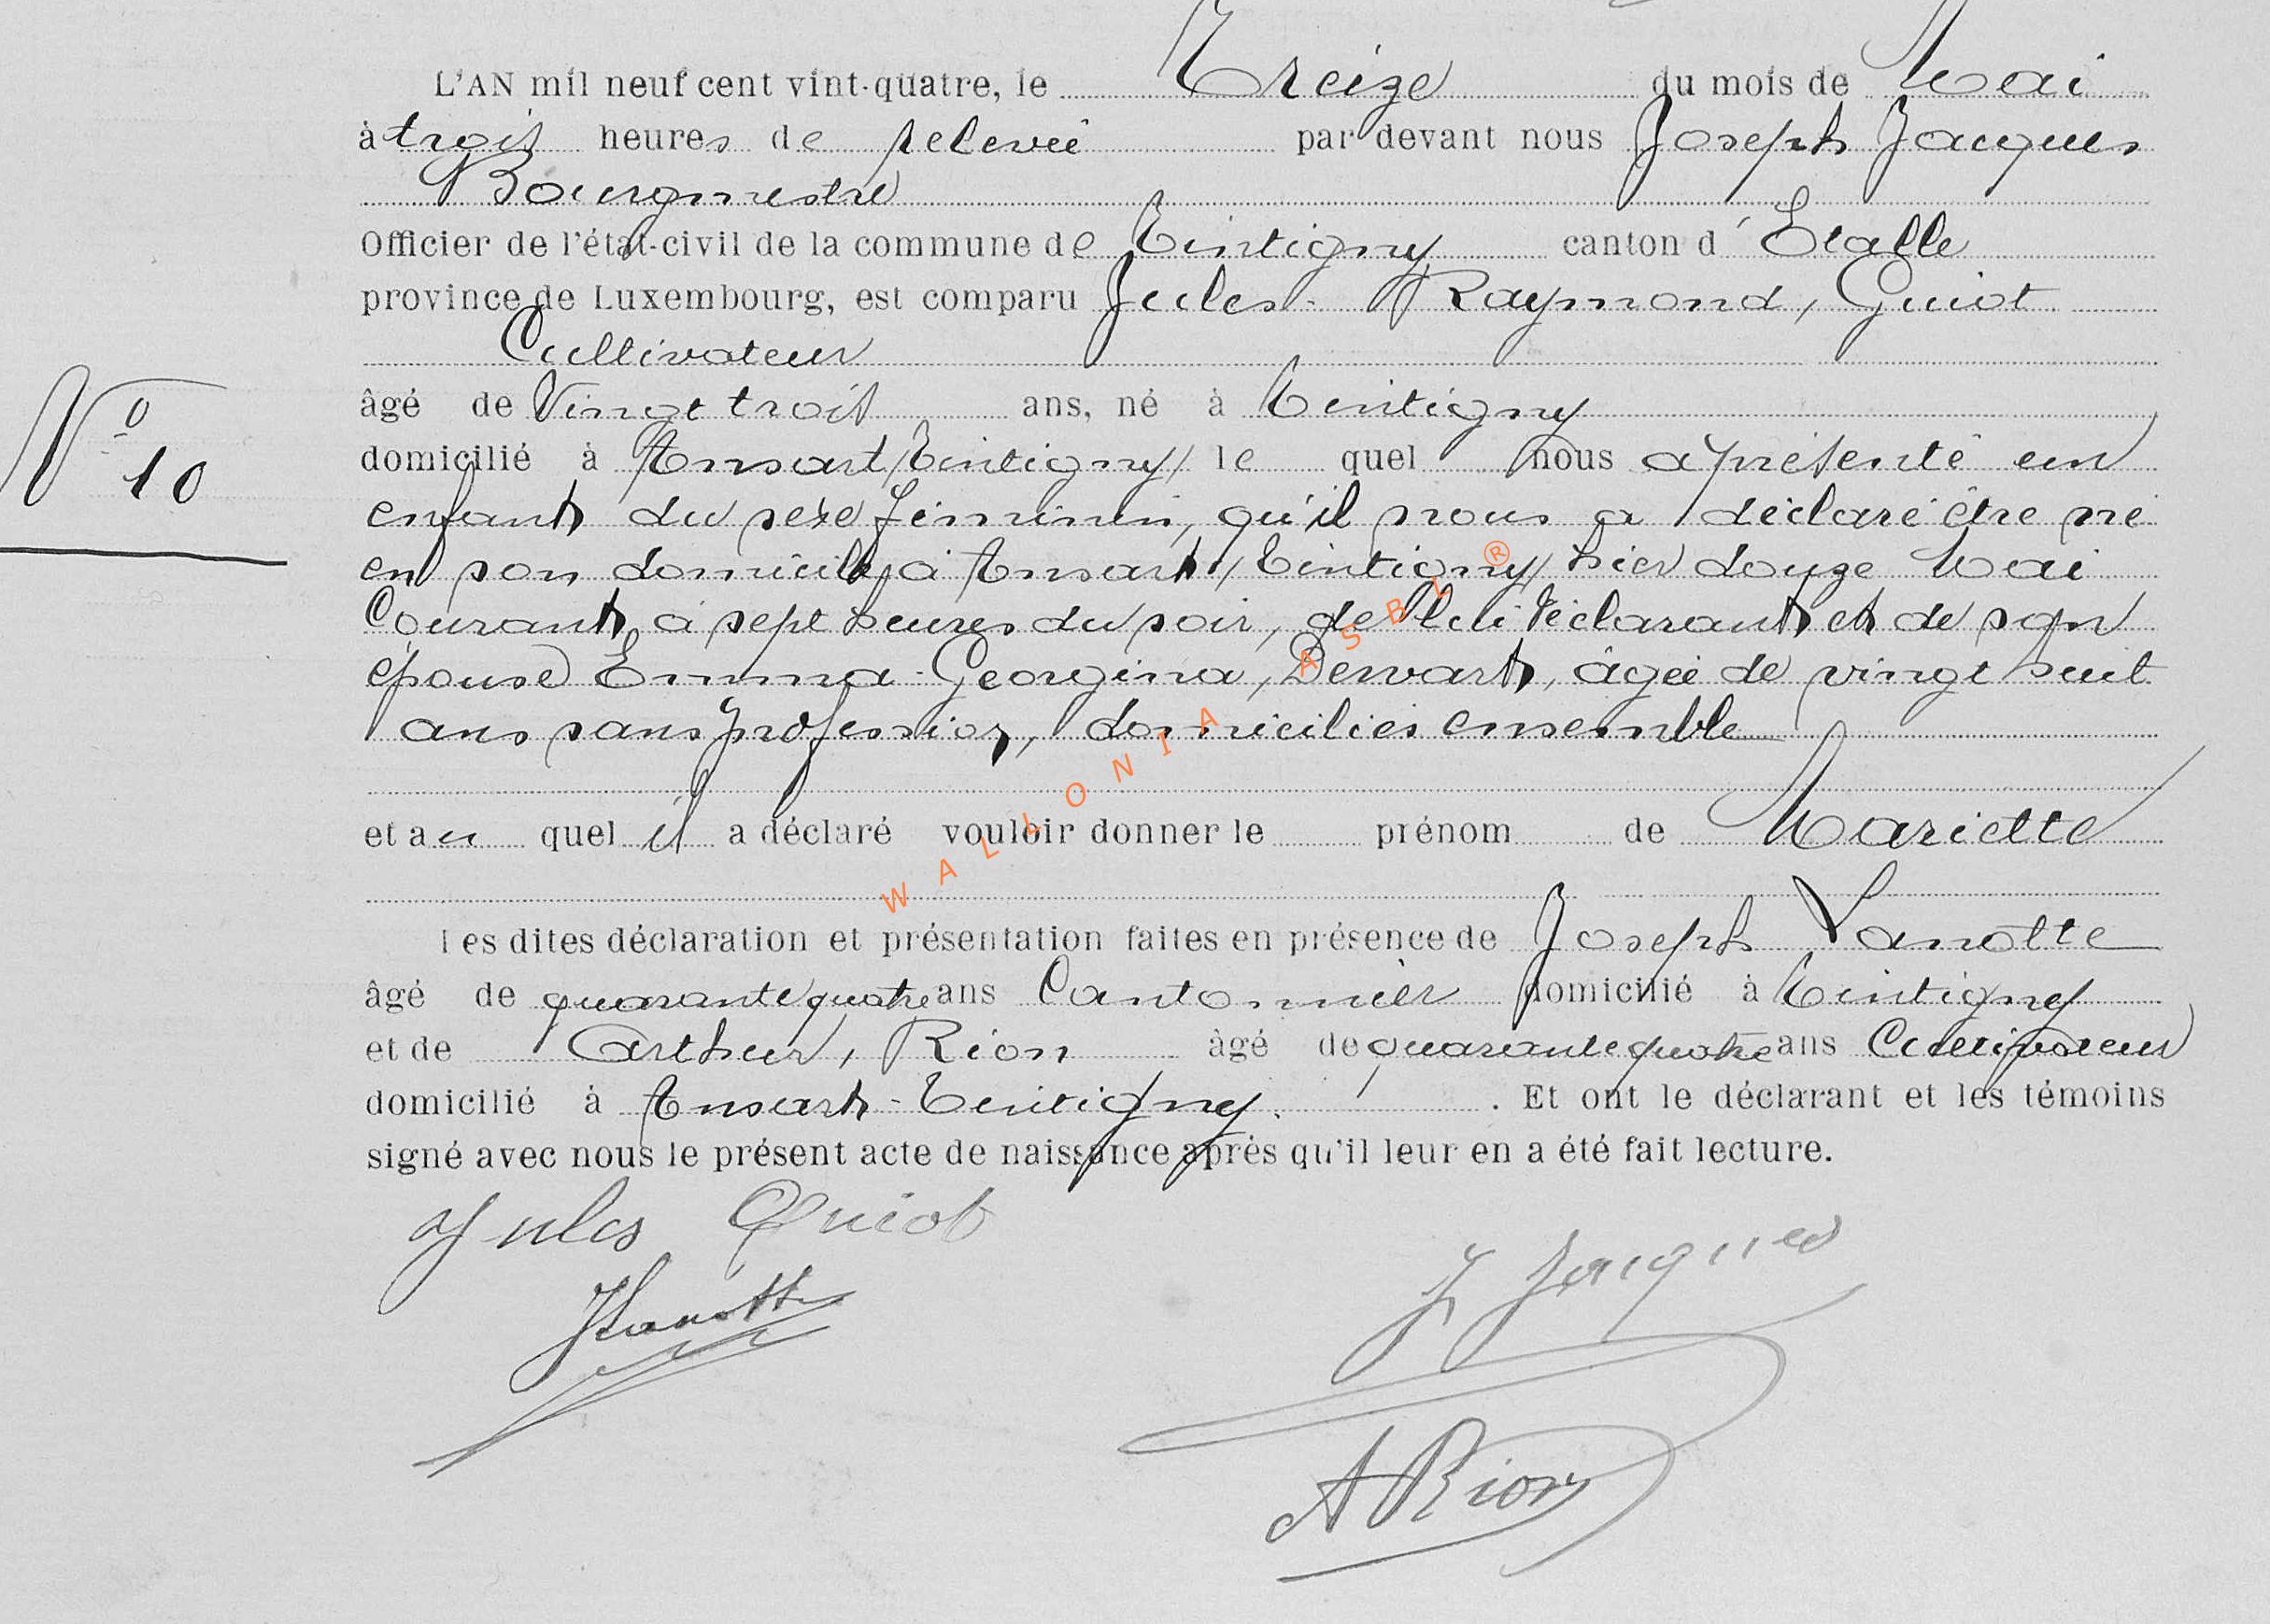 L'AN mil neuf cent vint-quatre, le Treize du mois de Mai
à trois heures de relevée par devant nous Joseph Jacques
Bourgmestre
Officier de l'état-civil de la commune de Tintigny canton d'Etalle
province de Luxembourg, est comparu Jules-Raymond, Guiot
Cultivateur
âgé de Vingt trois ans, né à Tintigny
domicilié à Ansart/Tintigny/ le quel nous a présenté un
N° 10
enfant du sexe féminin, qu'il nous a déclaré être né
en son domicile, à Ansart/Tintigny/ hier douze Mai
Courant, à sept heures du soir, de lui déclarant et de son
épouse Emma-Georgina, Dewart, âgée de vingt huit
ans sans profession, domiciliés ensemble
et au quel il a déclaré vouloir donner le prénom de Mariette
Les dites déclaration et présentation faites en présence de Joseph Lanotte
âgé de quarante quatre ans Cantonnier domicilié à Tintigny
et de Arthur, Rion âgé de quarante quatre ans Cultivateur
domicilié à Ansart-Tintigny. . Et ont le déclarant et les témoins
signé avec nous le présent acte de naissance après qu'il leur en a été fait lecture.
Jules Guiot
J Jacques
JLanotte
A Rion
WALLONIA ASBL ®